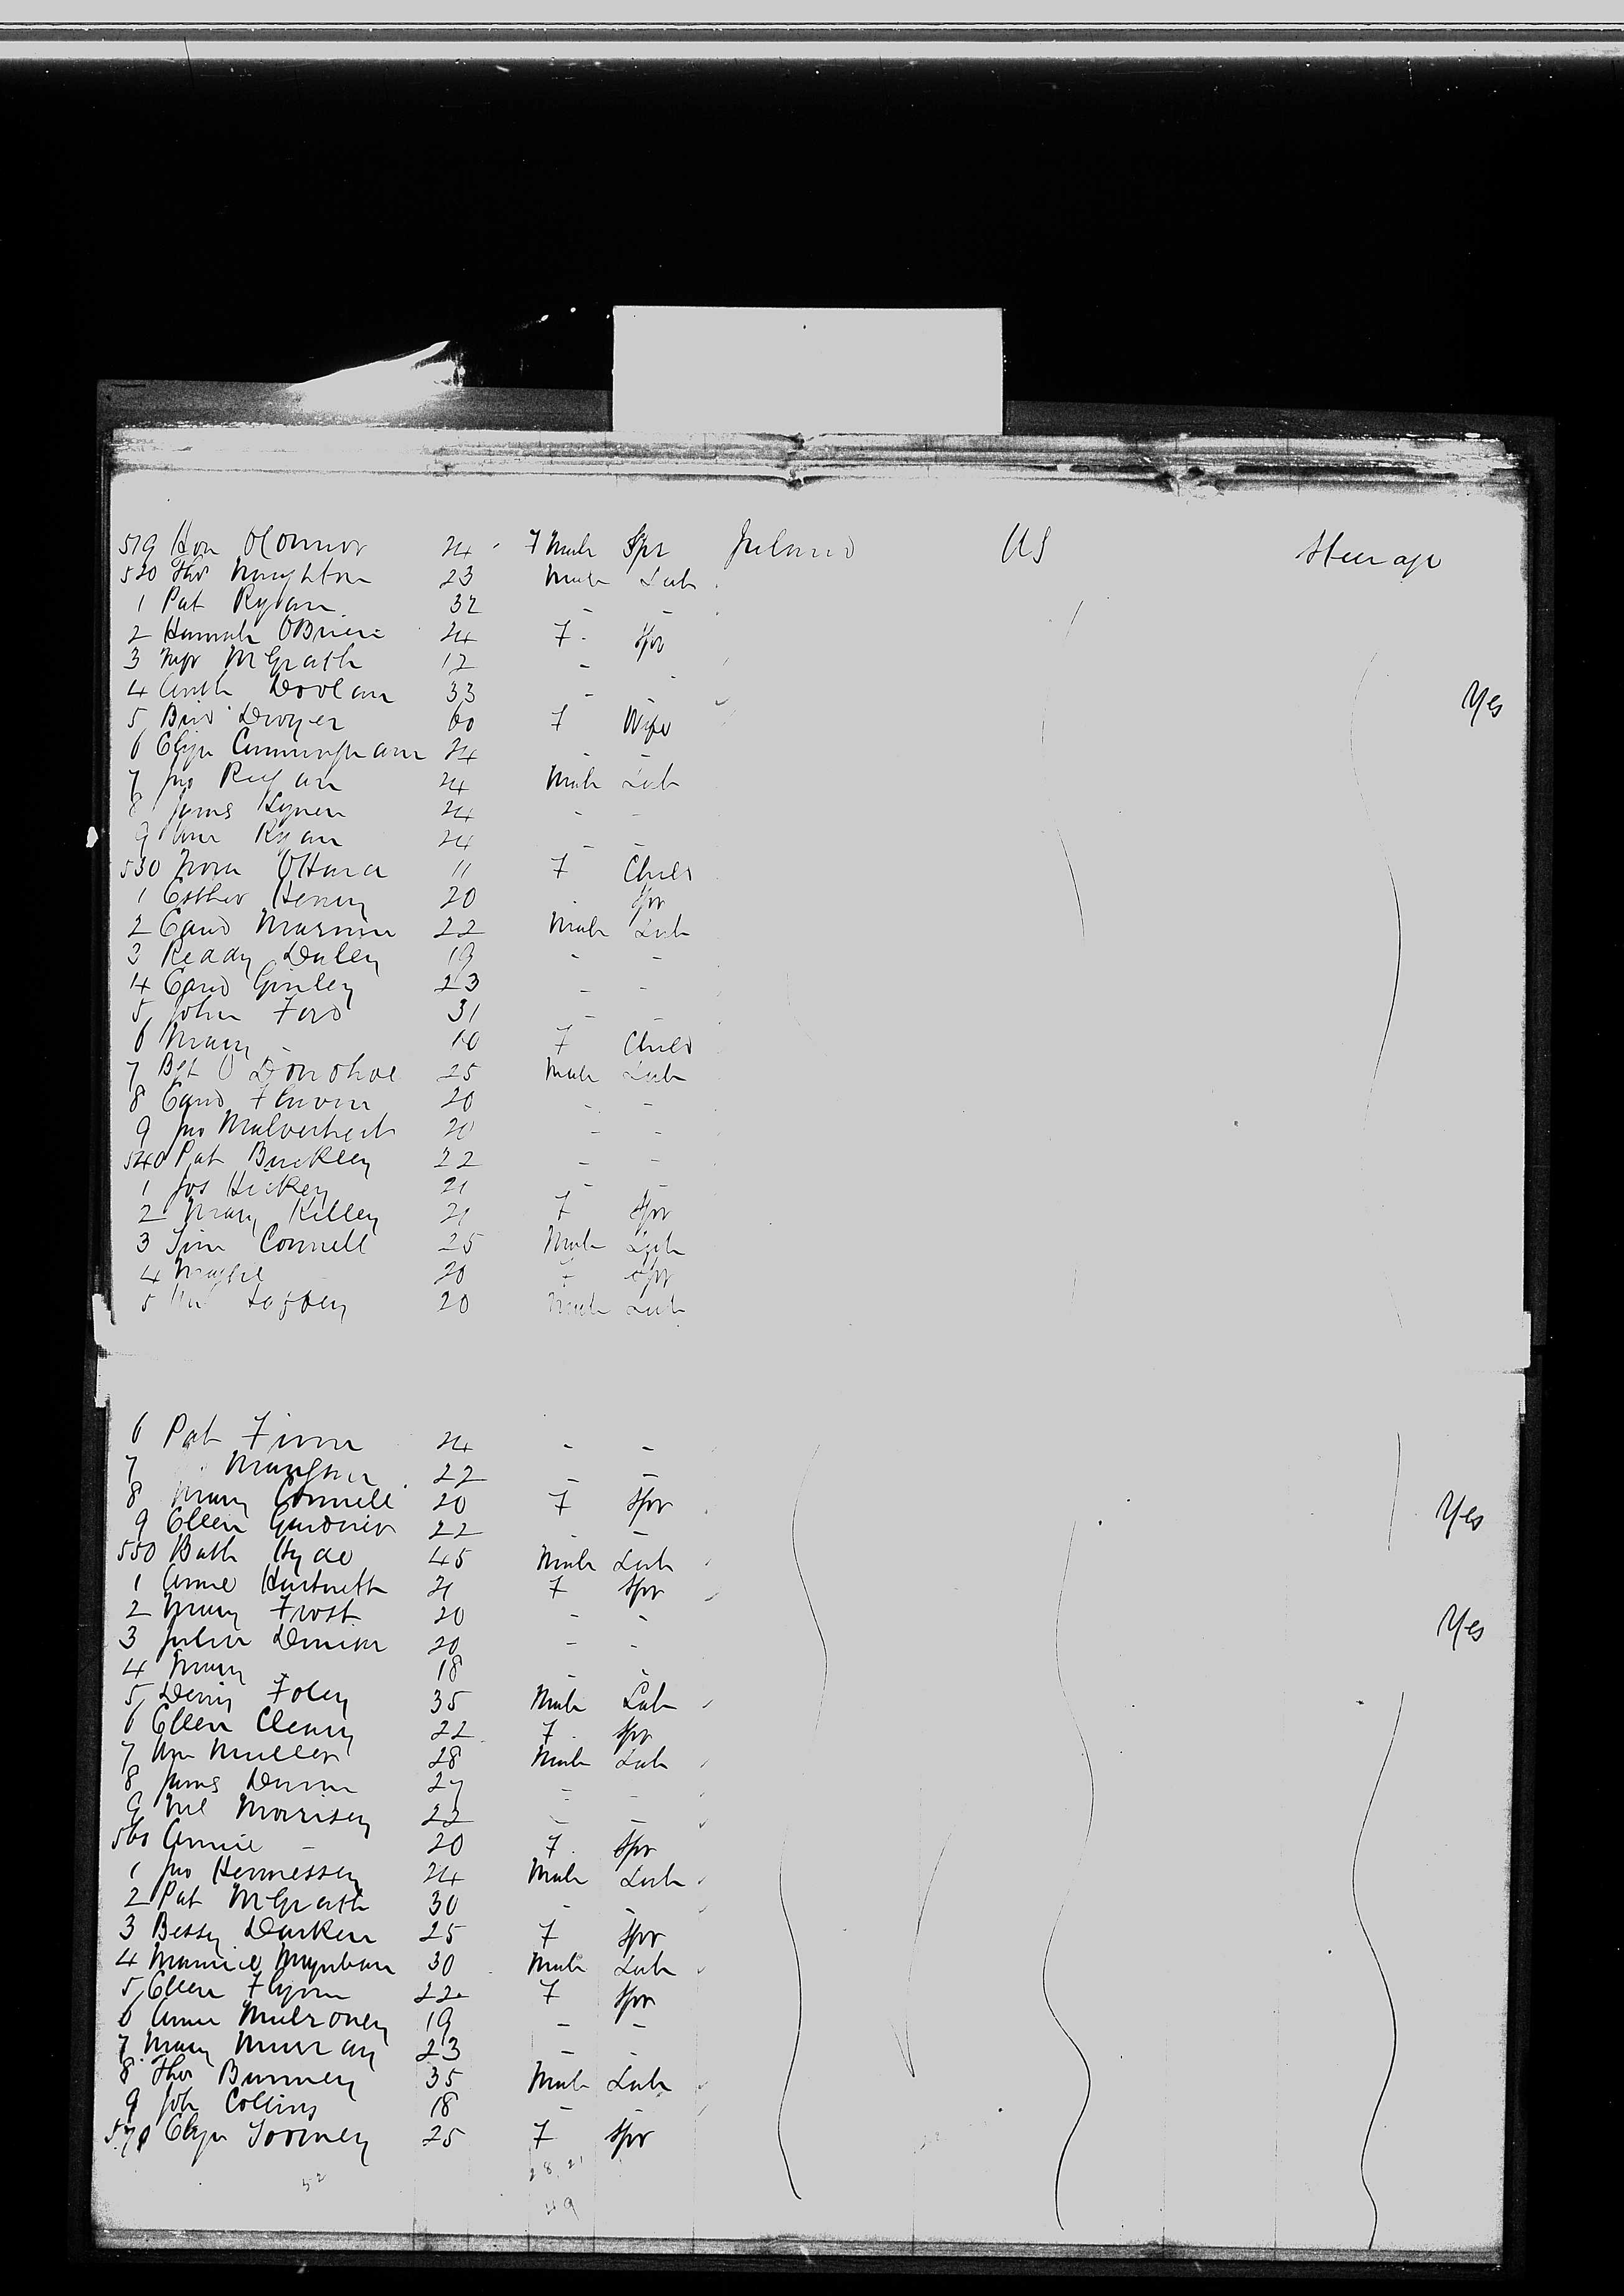 519 Hon OConnor 24 F Male Spr Ireland US Steerage
520 Thos Naughton 23 Male Lab
1 Pat Ryan 32 - -
2 Hannah OBrien 24 F Spr
3 McGrath 12 -
4 Doolan 33 - - Yes
5 Brid Dwyer 60 F Wife
6 Eliza Cunningham 24 - -
7 Jno Regan 24 Male Lab
8 James 24 - -
9 Wm Ryan 24 - -
530 Nora OHara 11 F Child
1 Esther Henry 20 - Spr
2 Edwd 22 Male Lab
3 Daley 19 - -
4 Edwd Ginley 23 - -
5 John Ford 31 - -
6 Mary - 10 F Child
7 O Donohoe 25 Male Lab
8 Edwd 20 - -
9 Jno 20 - -
540 Pat Buckley 22 - -
1 Jos Hickey 21 - -
2 Mary Killey 21 F Spr
3 Tim Connell 25 Male Lab
4 Maggie - 20 F Spr
5 20 Male Lab
6 Pat Finn 24 - -
7 22 - -
8 Mary Connell 20 F Spr Yes
9 Ellen Gardner 22 - -
550 Hyde 45 Male Lab
1 Annie Hartnett 21 F Spr
2 Mary Frost 20 - - Yes
3 Julia 20 - -
4 Mary - 18 - -
5 Denis Foley 35 Male Lab
6 Ellen Cleary 22 F Spr
7 Wm 28 Male Lab
8 James 27 - -
9 Ml Morrisey 22 - -
560 Annie - 20 F Spr
1 Jno Hennessey 24 Male Lab
2 Pat McGrath 30 - -
3 Bessy Durken 25 F Spr
4 Maurice Moynihan 30 Male Lab
5 Ellen Flynn 22 F Spr
6 Anne Mulroney 19 - -
7 Mary Murray 23 - -
8 Thos 35 Male Lab
9 Joh Collins 18 - -
570 Eliza Toomey 25 F Spr
52 28 21
49